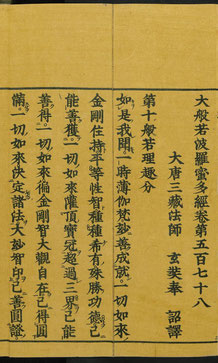 大般若波羅蜜多經卷第五百七十八
大唐三藏法師 玄奘奉 詔譯
第十般若理趣分
如是我聞一時薄伽梵妙善成就一切如來
金剛住持平等性智種種希有殊勝功德已
能善獲一切如來灌頂寶冠超過三界已能
善得一切如來徧金剛智大觀自在已得圓
滿一切如來決定諸法大妙智印已善圓證